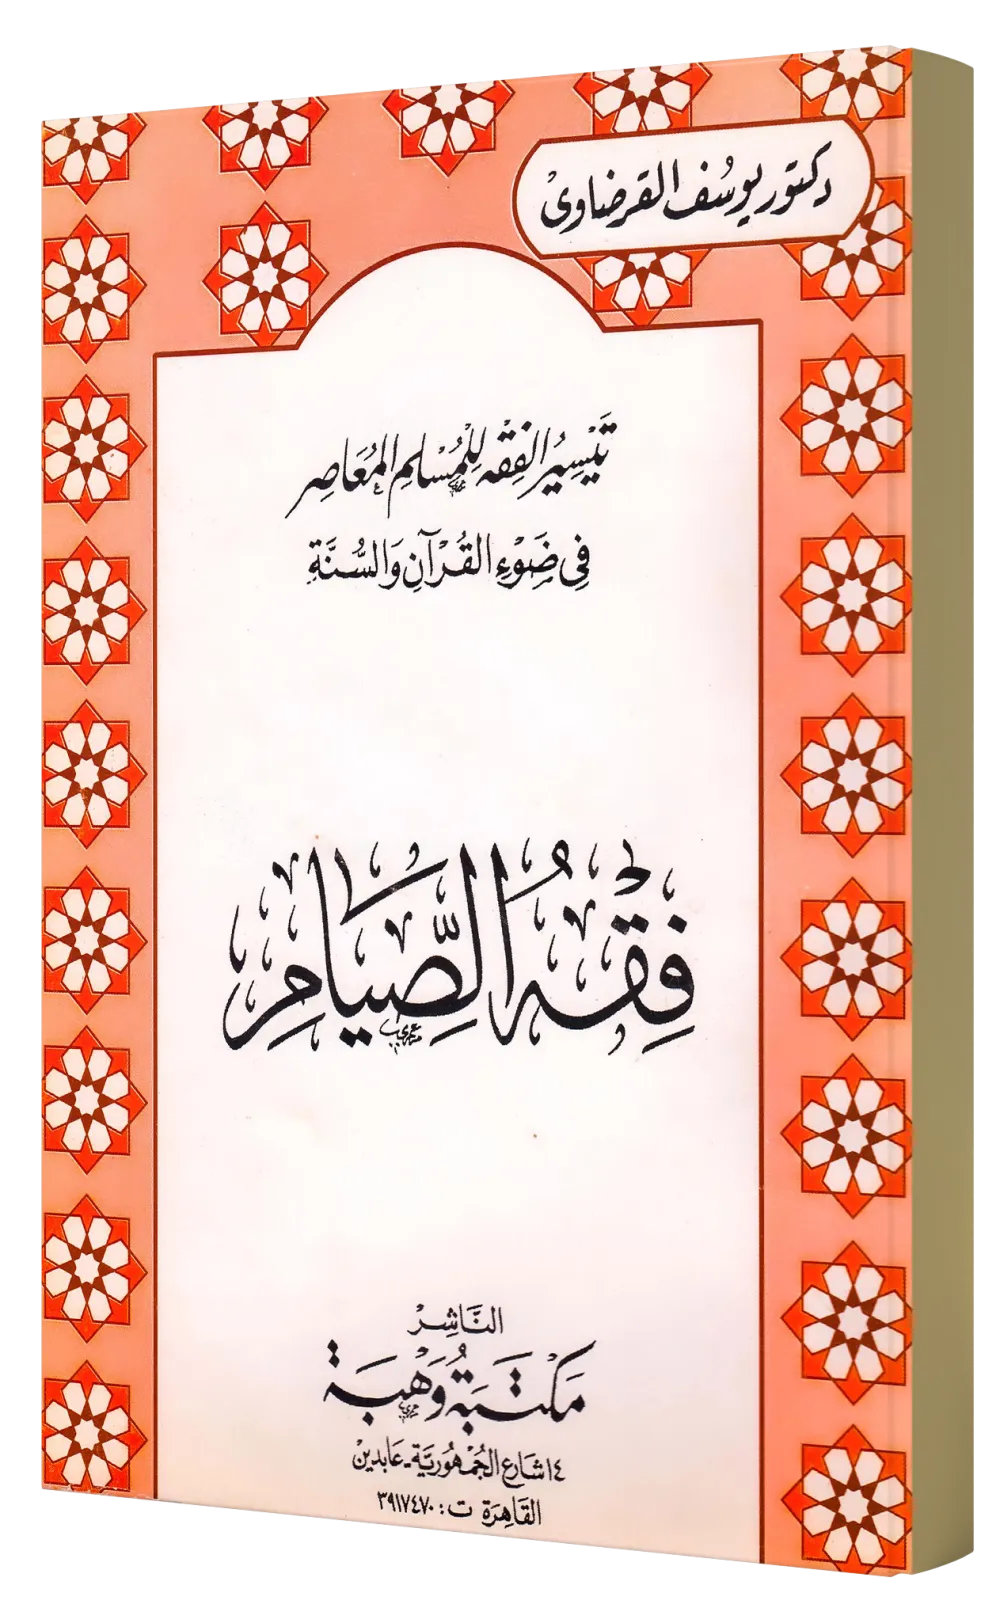 دكتور يوسُف القرضاوى
تَيْسِيرُ الفِقْه لِلْمُسْلِمِ المُعَاصِر
فِي ضَوْءِ القُرْآنِ وَالسُّنَّةِ
فِقْهُ الصِّيَامِ
النَّاشِرْ
مَكتَبَة وَهْبَة
١٤ شَارع الجُمْهُورِيَّة - عَابدين
القَاهِرَة ت : ٣٩١٧٤٧٠